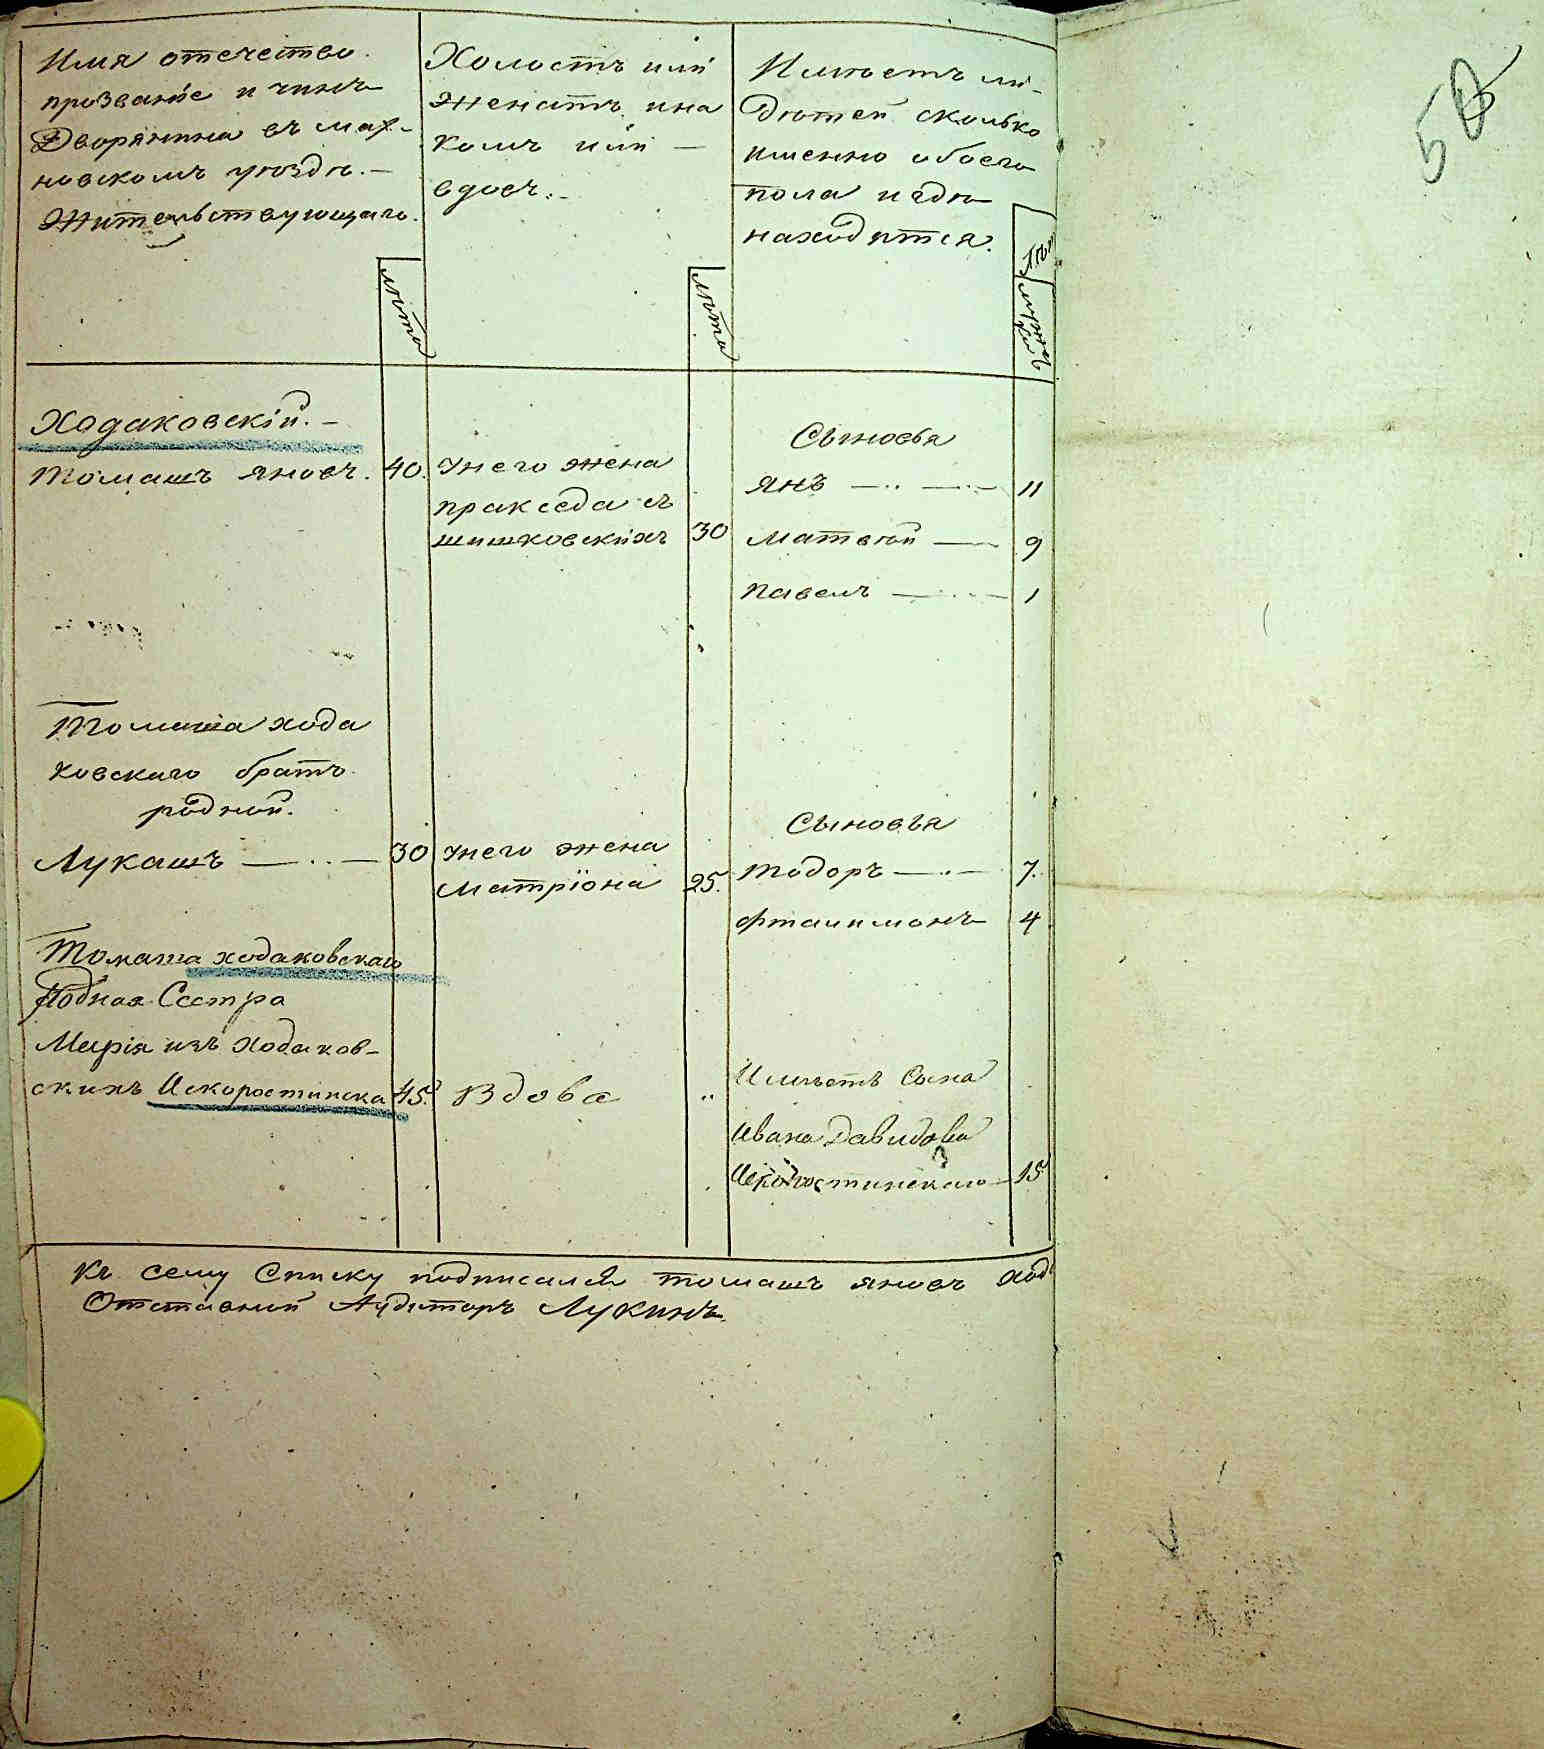 Имя отечество
прозваніе и чинъ
Дворянина въ мах-
новскомъ уѣздѣ.-
Жительствующаго.
лѣта
Холостъ или
Женатъ, и на
комъ или —
вдовъ.-
лѣта
Имѣетъ ли-
Дѣтей сколько
именно обоего
пола и гдѣ
находятся.
лѣта
мужеск
50
Ходаковскій.-
Томашъ яновъ. 40.
Унего жена
пракседа съ
шишковскихъ 30
Сыновья
янъ 11
матвѣй 9
павелъ 1
Томаша хода
ковскаго братъ
родной.
Лукашъ 30
Унего жена
матріона 25.
Сыновья
тодоръ 7.
фталимонъ 4
Томаша ходаковскаго
Родная Сестра
Марія изъ Ходаков-
скихъ Искоростинска 45.
Вдова „
Имѣетъ Сына
Ивана Давидова
Искоростинскаго 15
Къ сему Списку подписался томашъ яновъ Ход
Отставной Аудиторъ Лукинъ.